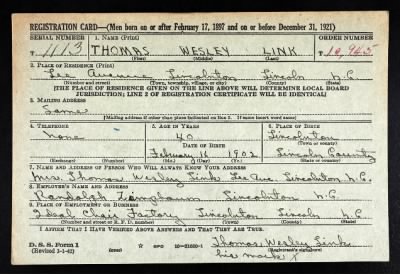 REGISTRATION CARD—(Men born on or after February 17, 1897 and on or before December 31, 1921)
SERIAL NUMBER 1. NAME (Print) ORDER NUMBER
T 1113 THOMAS WESLEY LINK T 10,945
(First) (Middle) (Last)
2. PLACE OF RESIDENCE (Print)
Lee Avenue Lincolnton Lincoln N.C.
(Number and street) (Town, township, village, or city) (County) (State)
[THE PLACE OF RESIDENCE GIVEN ON THE LINE ABOVE WILL DETERMINE LOCAL BOARD
JURISDICTION; LINE 2 OF REGISTRATION CERTIFICATE WILL BE IDENTICAL]
3. MAILING ADDRESS
Same
[Mailing address if other than place indicated on line 2. If same insert word same]
4. TELEPHONE 5. AGE IN YEARS 6. PLACE OF BIRTH
None 40 Lincolnton
DATE OF BIRTH (Town or county)
February 11 1902 Lincoln County
(Exchange) (Number) (Mo.) (Day) (Yr.) (State or country)
7. NAME AND ADDRESS OF PERSON WHO WILL ALWAYS KNOW YOUR ADDRESS
Mrs. Thomas Wesley Link Lee Ave. Lincolnton N.C.
8. EMPLOYER'S NAME AND ADDRESS
Randolph Lincolnton N.C.
9. PLACE OF EMPLOYMENT OR BUSINESS
Ideal Chair Factory Lincolnton Lincoln N.C.
(Number and street or R. F. D. number) (Town) (County) (State)
I AFFIRM THAT I HAVE VERIFIED ABOVE ANSWERS AND THAT THEY ARE TRUE.
D. S. S. Form 1
(Revised 1-1-42) (over) GPO 16—21630-1 Thomas Wesley Link
(Registrant's signature)
his mark